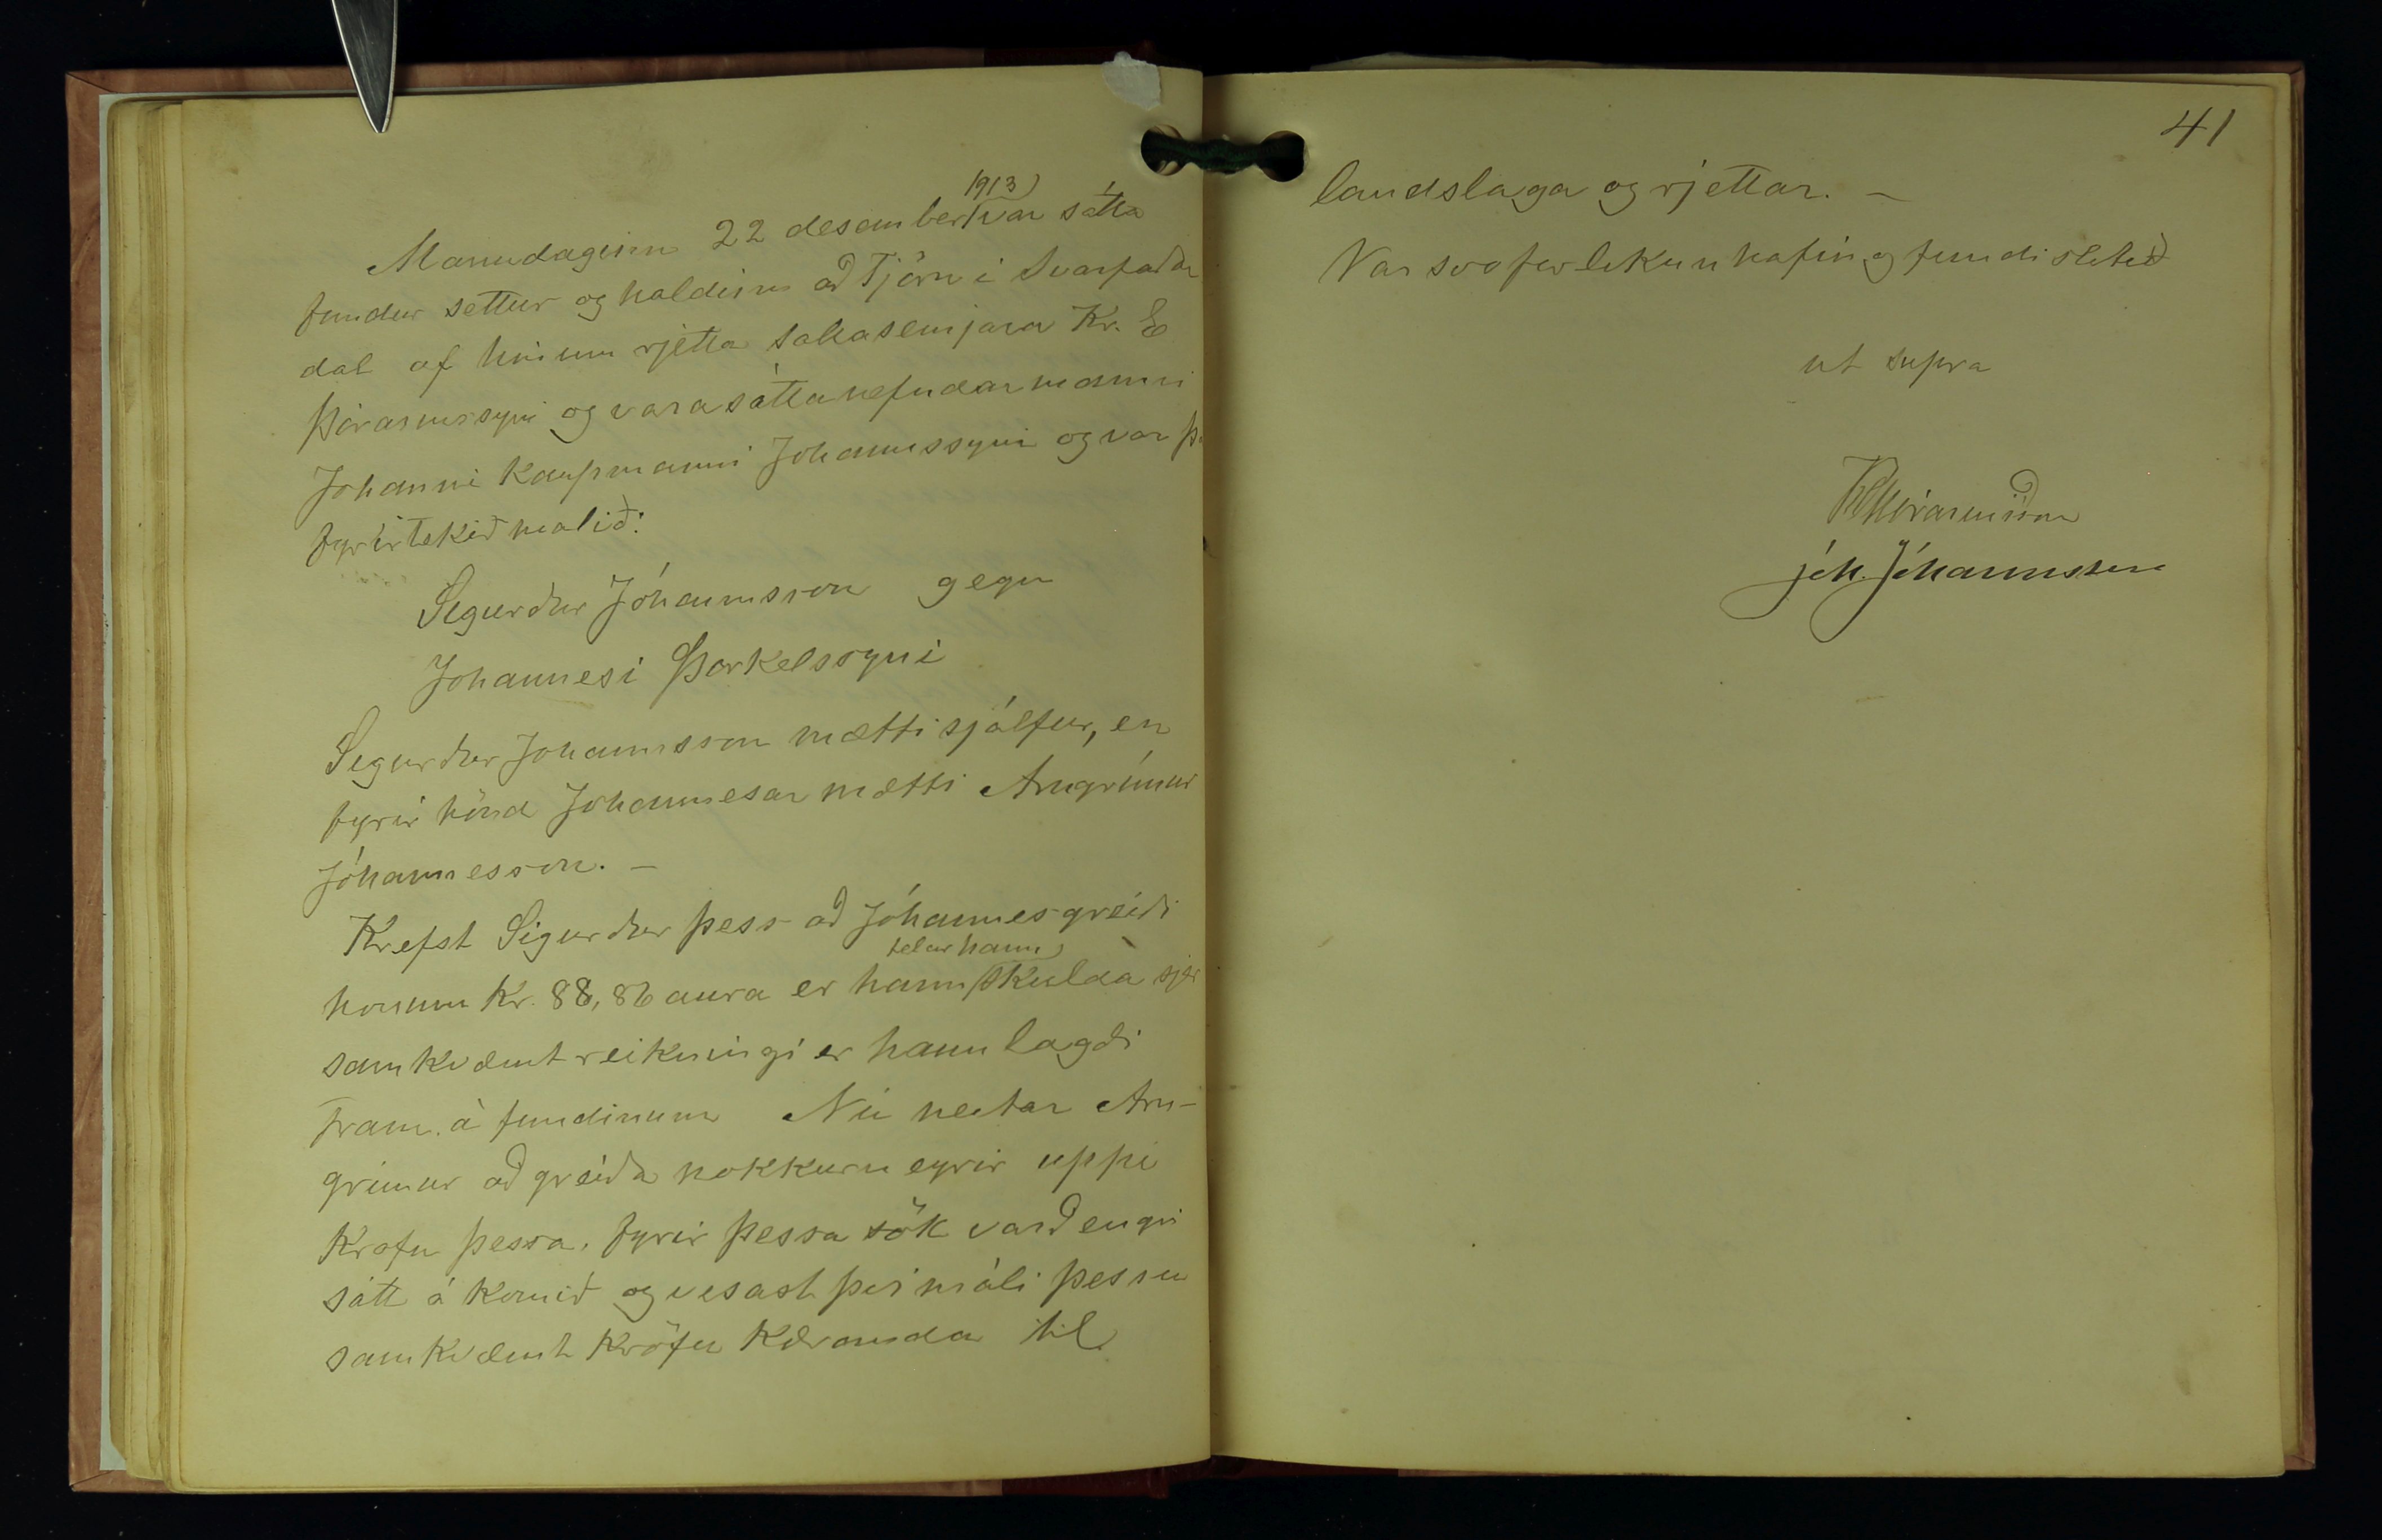 Manudaginn 22 desember 1913 var sátta
fundur settur og haldinn að Tjörn i Svarfaðar
dal af hinum rjetta sáttasemjara Kr. E
Þórarinssyni og varasáttanefndarmanni
Johanni Kaupmanni Johannssyni og var þ
fyrirtekið malið:
Sigurður Jóhannsson gegn
Johannesi Þorkelssyni
Sigurður Johannsson mætti sjálfur, en
fyrir hönd Johannesar mætti Arngrímur
Jóhannesson. –
Krefst Sigurður þess að Jóhannes greiði
honum Kr. 88,86 aura er hann telur hann skulda sjer
samkvæmt reikningi er hann lagði
fram á fundinum Nú neitar Arn-
grimur að greiða nokkurn eyrir uppi
Krofu þessa, fyrir þessa sök varð engin
sátt á komið og visast þvi máli þessu
samkvæmt Kröfu Kæranda til
41
landslaga og rjettar. –
Var svo forlikun hafin og fundi slitið
ut supra
KrEÞórarinsson
Jóh. Jóhannsson